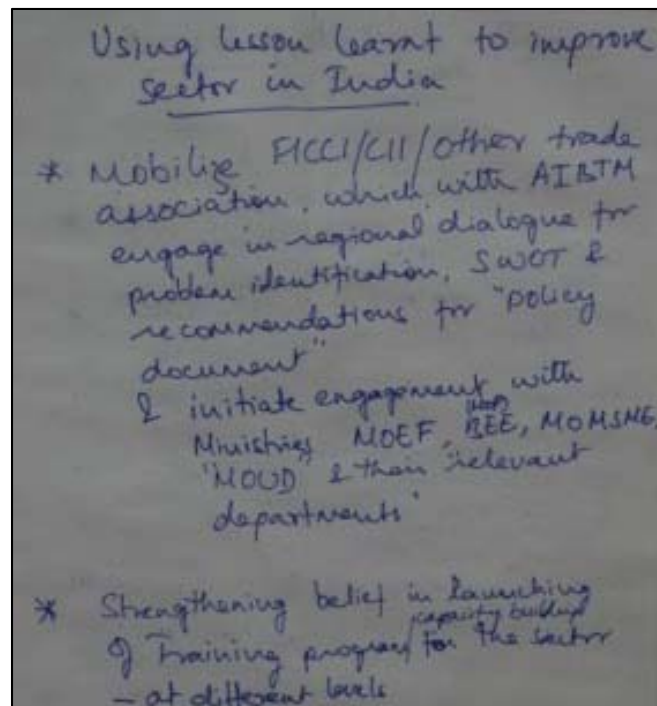 Using lesson learnt to improve
sector in India
* Mobilize FICCI/CII/other trade
association, which with AIBTM
engage in regional dialogue for
problem identification, SWOT &
recommendations for "policy
document"
& initiate engagement with
Ministries MOEF, BEE, MOMSME,
"MOUD" & their relevant
departments'
* Strengthening belief in launching
of Training program/capacity buildup
for the sector
- at different levels